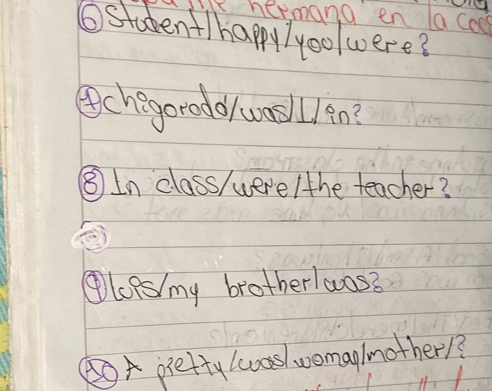 hermana en la
⑥ student/happy/you/were?
⑦ chigorodó/was/I/in?
⑧ In class/were/the teacher?
⑨ luis/my brother/was?
⑩ A pretty/was/woman/mother/?